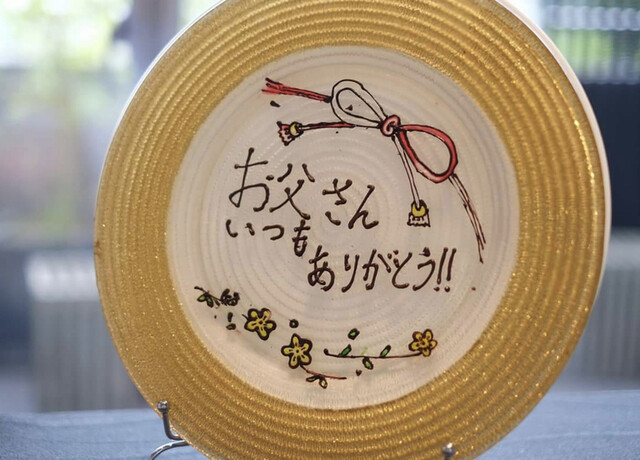 お父さん
いつも
ありがとう!!